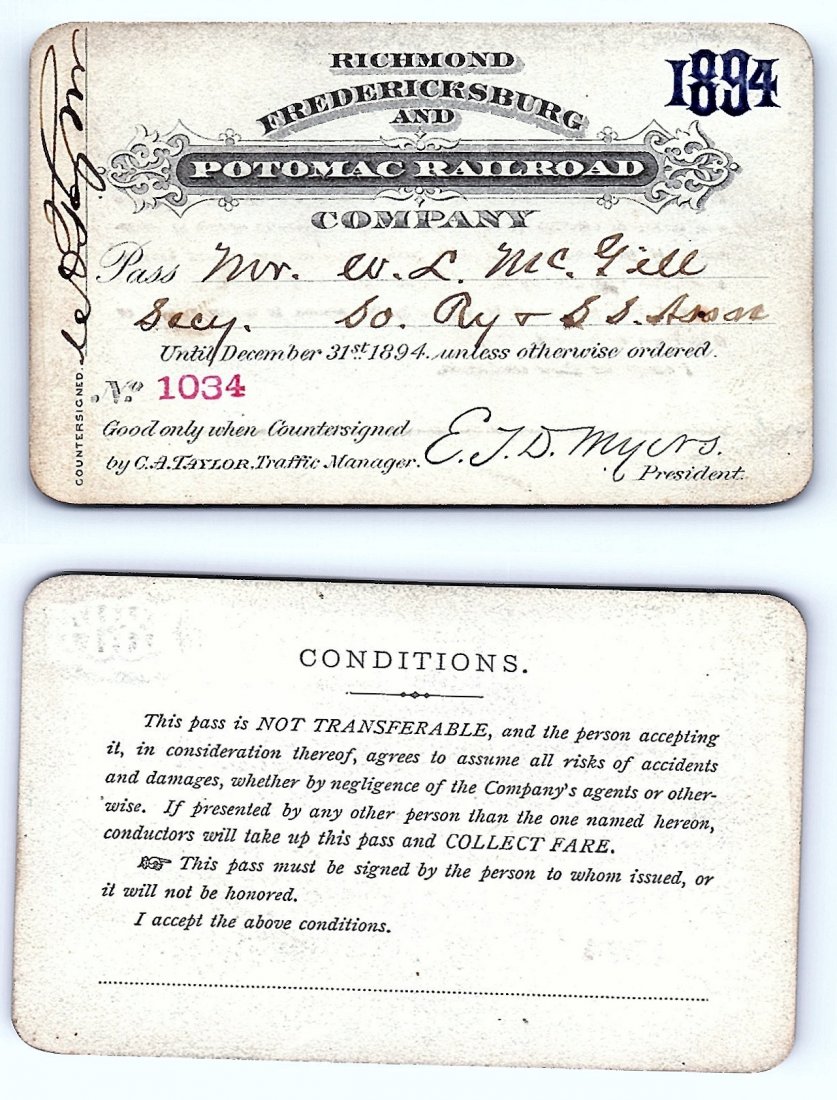 RICHMOND
FREDERICKSBURG
AND
POTOMAC RAILROAD
COMPANY
1894
Pass Mr. W. L. McGill
Secy. So. Ry & S S. Assn
Until December 31st 1894. unless otherwise ordered.
No 1034
Good only when Countersigned
by C.A. TAYLOR. Traffic Manager.
E. T. D. Myers.
President.
COUNTERSIGNED.
CONDITIONS.
This pass is NOT TRANSFERABLE, and the person accepting
it, in consideration thereof, agrees to assume all risks of accidents
and damages, whether by negligence of the Company's agents or other-
wise. If presented by any other person than the one named hereon,
conductors will take up this pass and COLLECT FARE.
☞ This pass must be signed by the person to whom issued, or
it will not be honored.
I accept the above conditions.